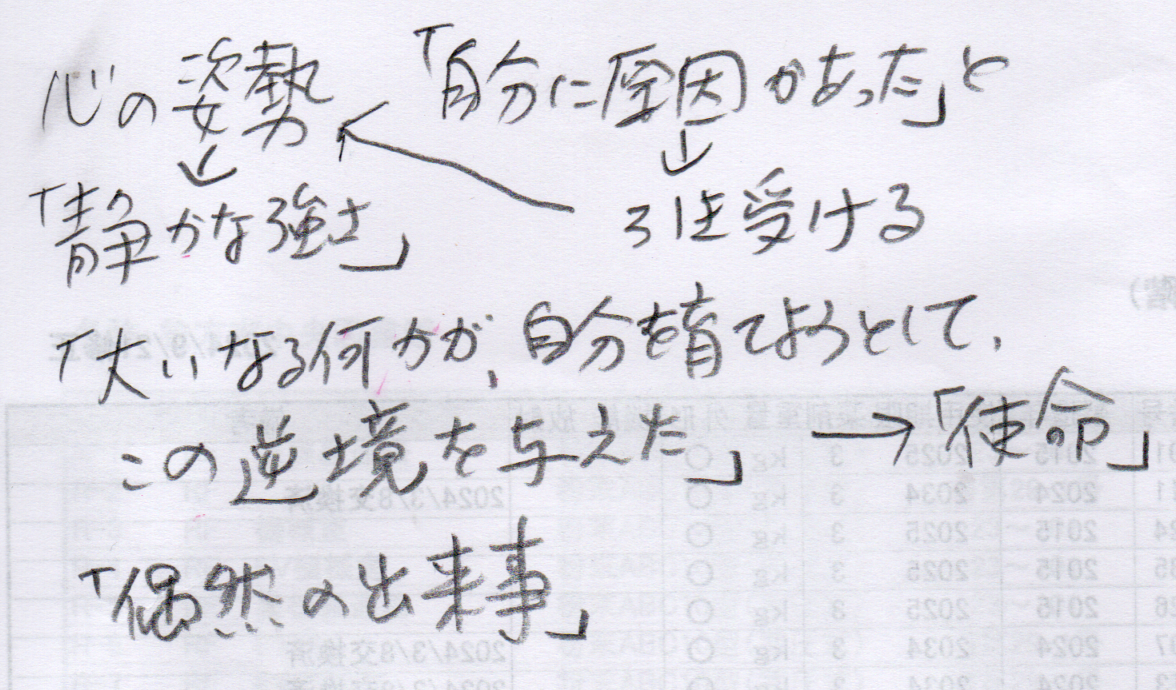 心の姿勢 「自分に原因があった」と
↓ ↓
「静かな強さ」 引き受ける
「大いなる何かが、自分を育てようとして、
この逆境を与えた」 →「使命」
「偶然の出来事」